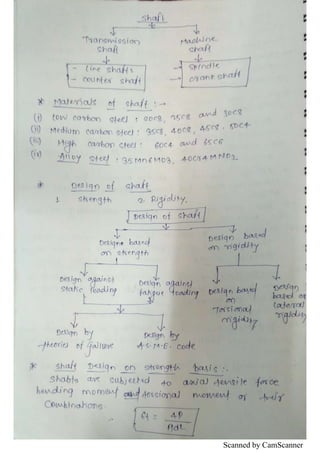 Shaft
Transmission Machine
shaft shaft
- Line shafts - Spindle
- counter shaft - Crank shaft
* Materials of shaft :→
(i) Low carbon steel : 20C8, 25C8 and 30C8
(ii) Medium carbon steel : 35C8, 40C8, 45C8, 50C4
(iii) High carbon steel : 60C4 and 65C6
(iv) Alloy steel : 35Mn6M03, 40Cr4MM02
* Design of shaft
1 strength 2. Rigidity.
Design of shaft
Design based Design based
on strength on rigidity
Design against Design against Design based Design
static loading fatigue loading on based on
Torsional Lateral
rigidity rigidity
Design by Design by
theories of failure A.S.M.E. code
* Shaft Design on strength basis :-
Shafts are subjected to axial tensile force
bending moment and torsional moment or their
Combinations.
Scanned by CamScanner